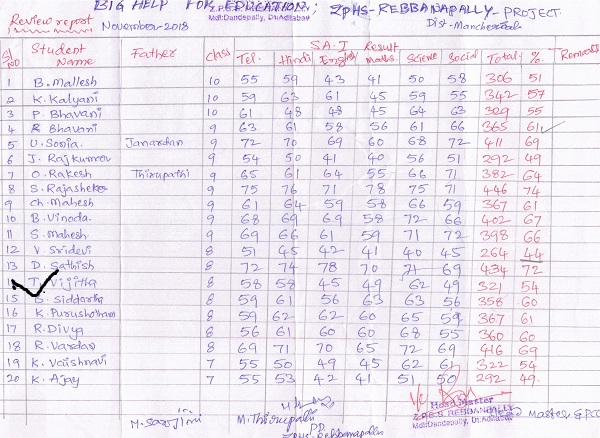 BIG HELP FOR EDUCATION; ZPHS-REBBANAPALLY-PROJECT.
Review report November-2018 Mdl:Dandepally, Dt.Adilabad Dist-Mancherial
SA-I Result
Sl NO Student Name Father Class Tel. Hindi English Maths Science Social Total % Remarks
1 B. Mallesh 10 55 59 43 41 50 58 306 51
2 K. Kalyani 10 59 63 61 45 59 55 342 57
3 P. Bhavani 10 61 48 48 45 64 63 329 55
4 R Bhavani 9 63 61 58 56 61 66 365 61
5 U. Sonia. Janardan 9 72 70 69 60 68 72 411 69
6 J. Rajkumar 9 54 50 41 40 56 51 292 49
7 O. Rakesh Thirupathi 9 65 61 64 55 66 71 382 64
8 S. Rajasheker 9 75 76 71 78 75 71 446 74
9 Ch. Mahesh 9 61 64 59 58 66 59 367 61
10 B. Vinoda. 9 68 69 69 58 72 66 402 67
11 S. Mahesh 9 69 66 61 59 71 72 398 66
12 V. Sridevi 8 51 45 42 41 40 45 264 44
13 D. Sathish 8 72 74 78 70 71 69 434 72
T. Vijitha 8 58 58 45 49 62 49 321 54
15 B. Siddartha 8 59 61 56 63 63 56 358 60
16 K. Purushotham 8 59 62 62 60 65 59 367 61
17 R. Divya 8 56 61 60 60 68 55 360 60
18 R. Vardan 8 69 71 70 65 72 69 416 69
19 K. Vaishnavi 7 55 50 49 45 62 61 322 54
20 K. Ajay 7 55 53 42 41 51 50 292 49.
M. Sarojini M. Thirupathi Head Master
PD Z.P.H.S. REBBANAPALLY
ZPHS-Rebbanapally Mdl:Dandepally, Dt.Adilabad Master